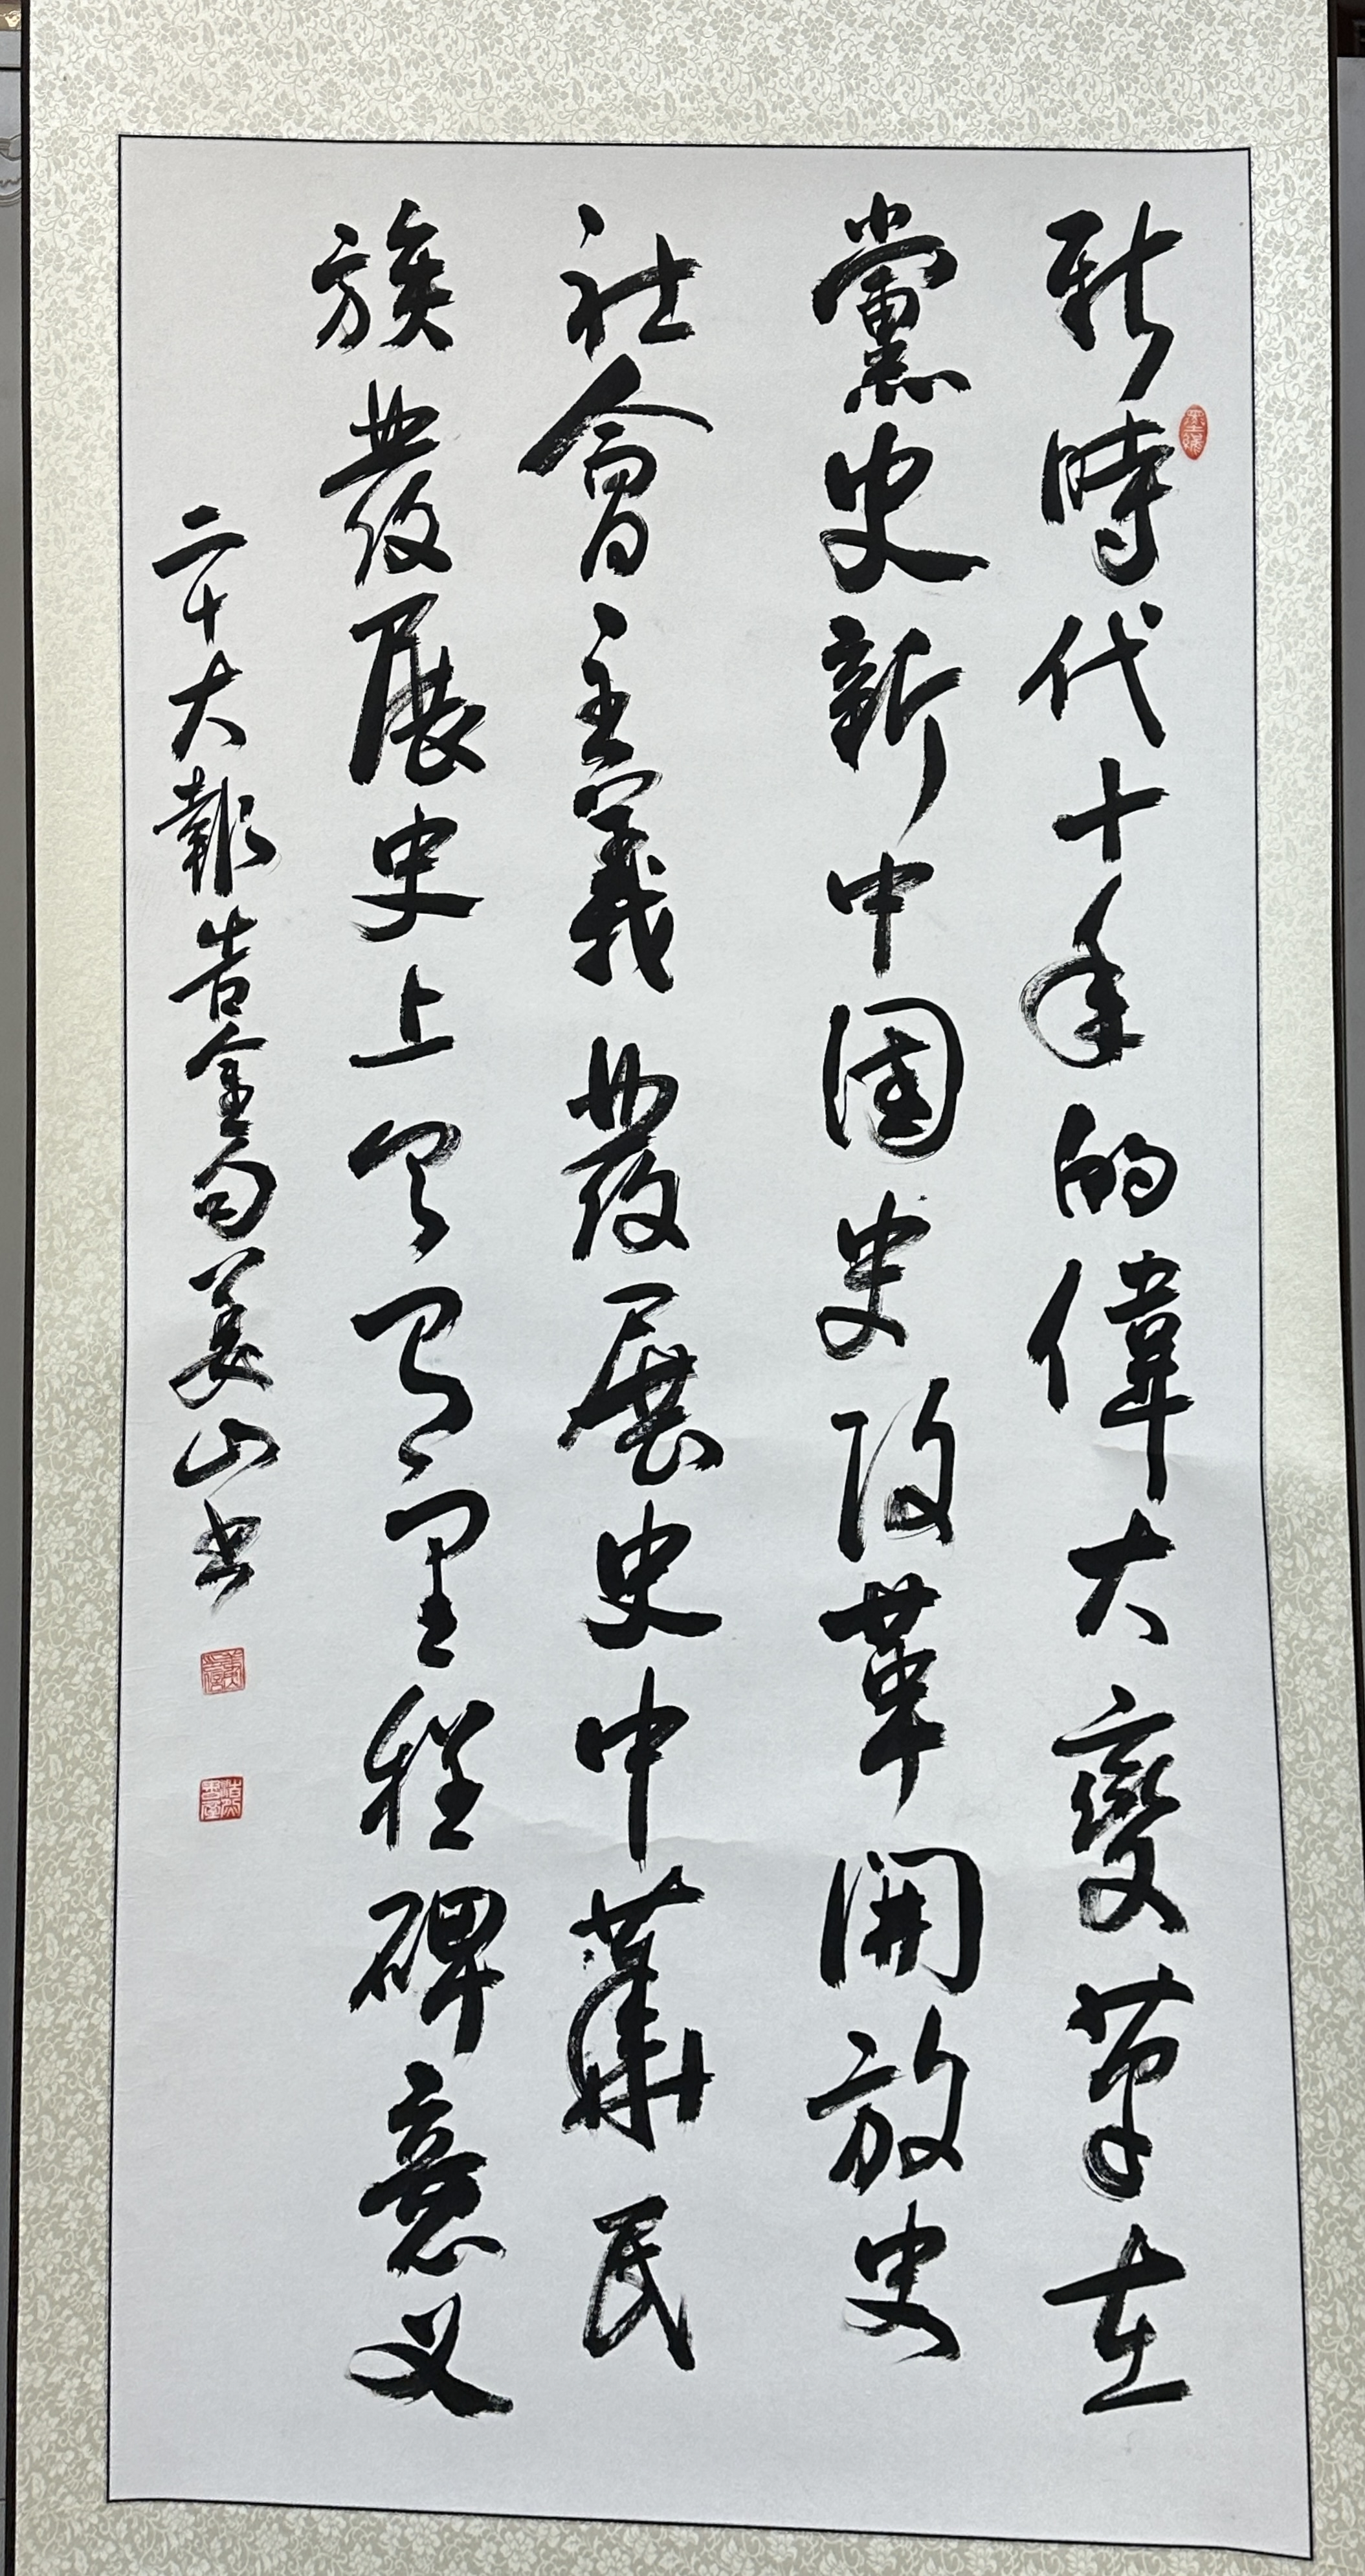 新時代十年的偉大變革在
黨史新中国史改革開放史
社會主義發展史中華民
族發展史上具有里程碑意义
二十大報告金句姜山书